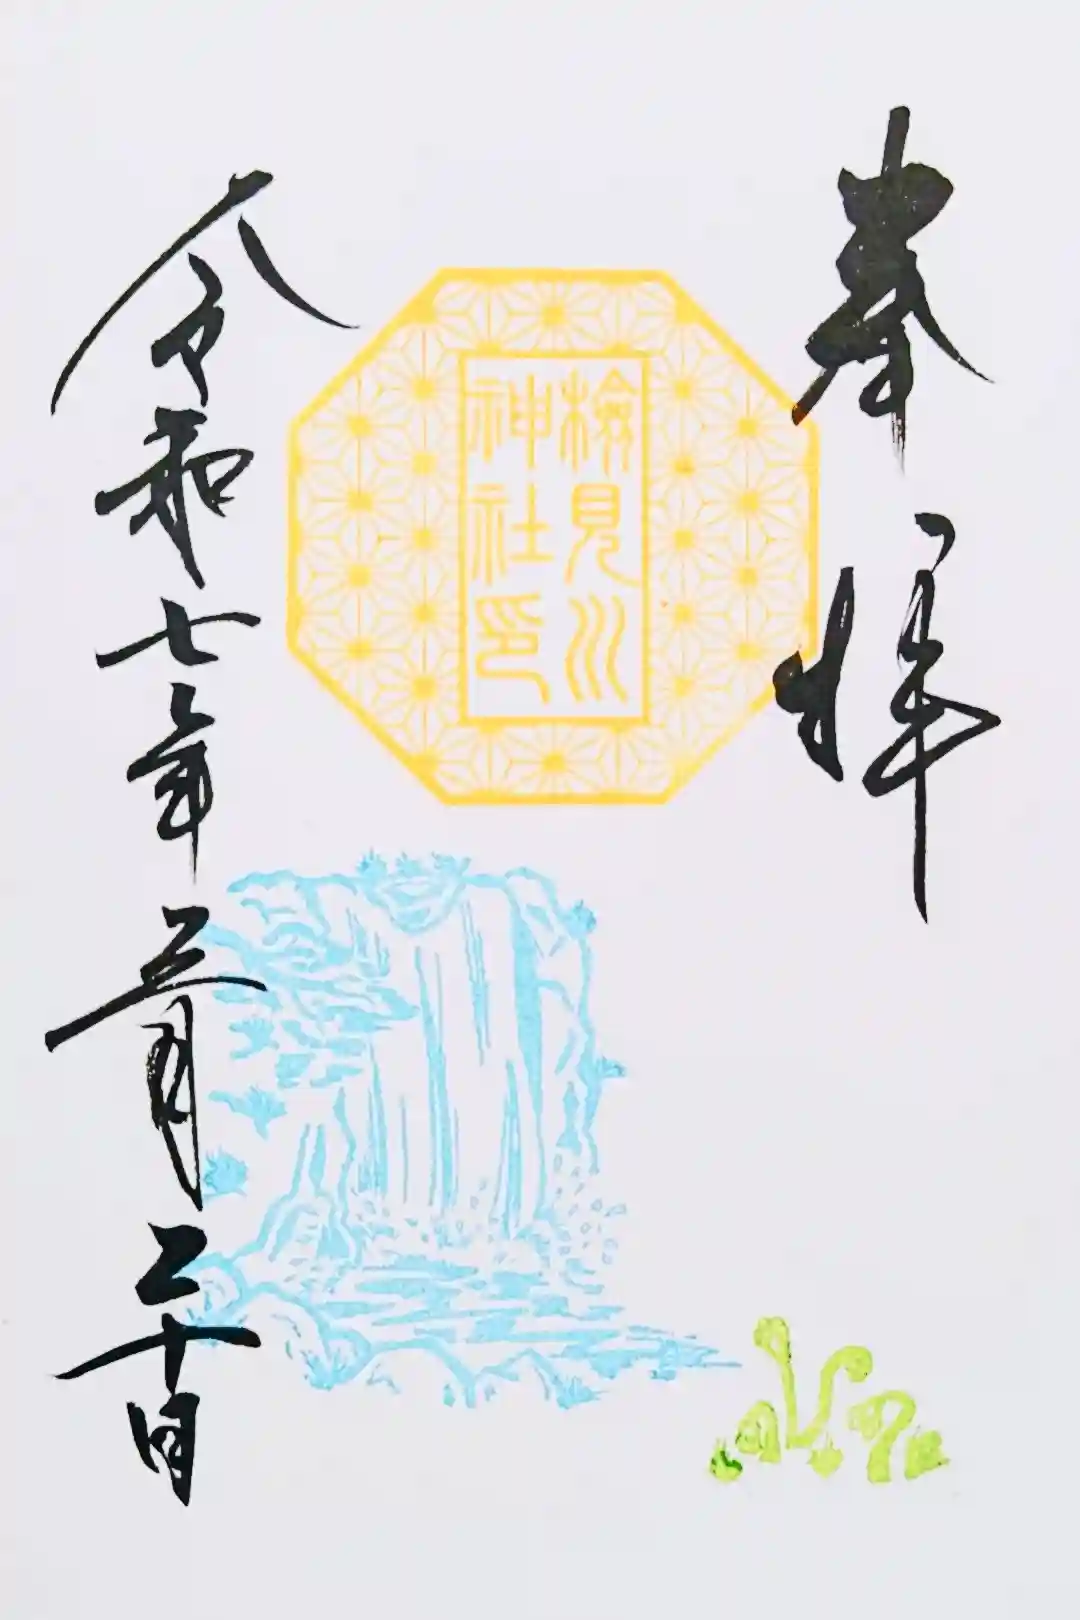 奉拝
検見川
神社印
令和七年三月二十日